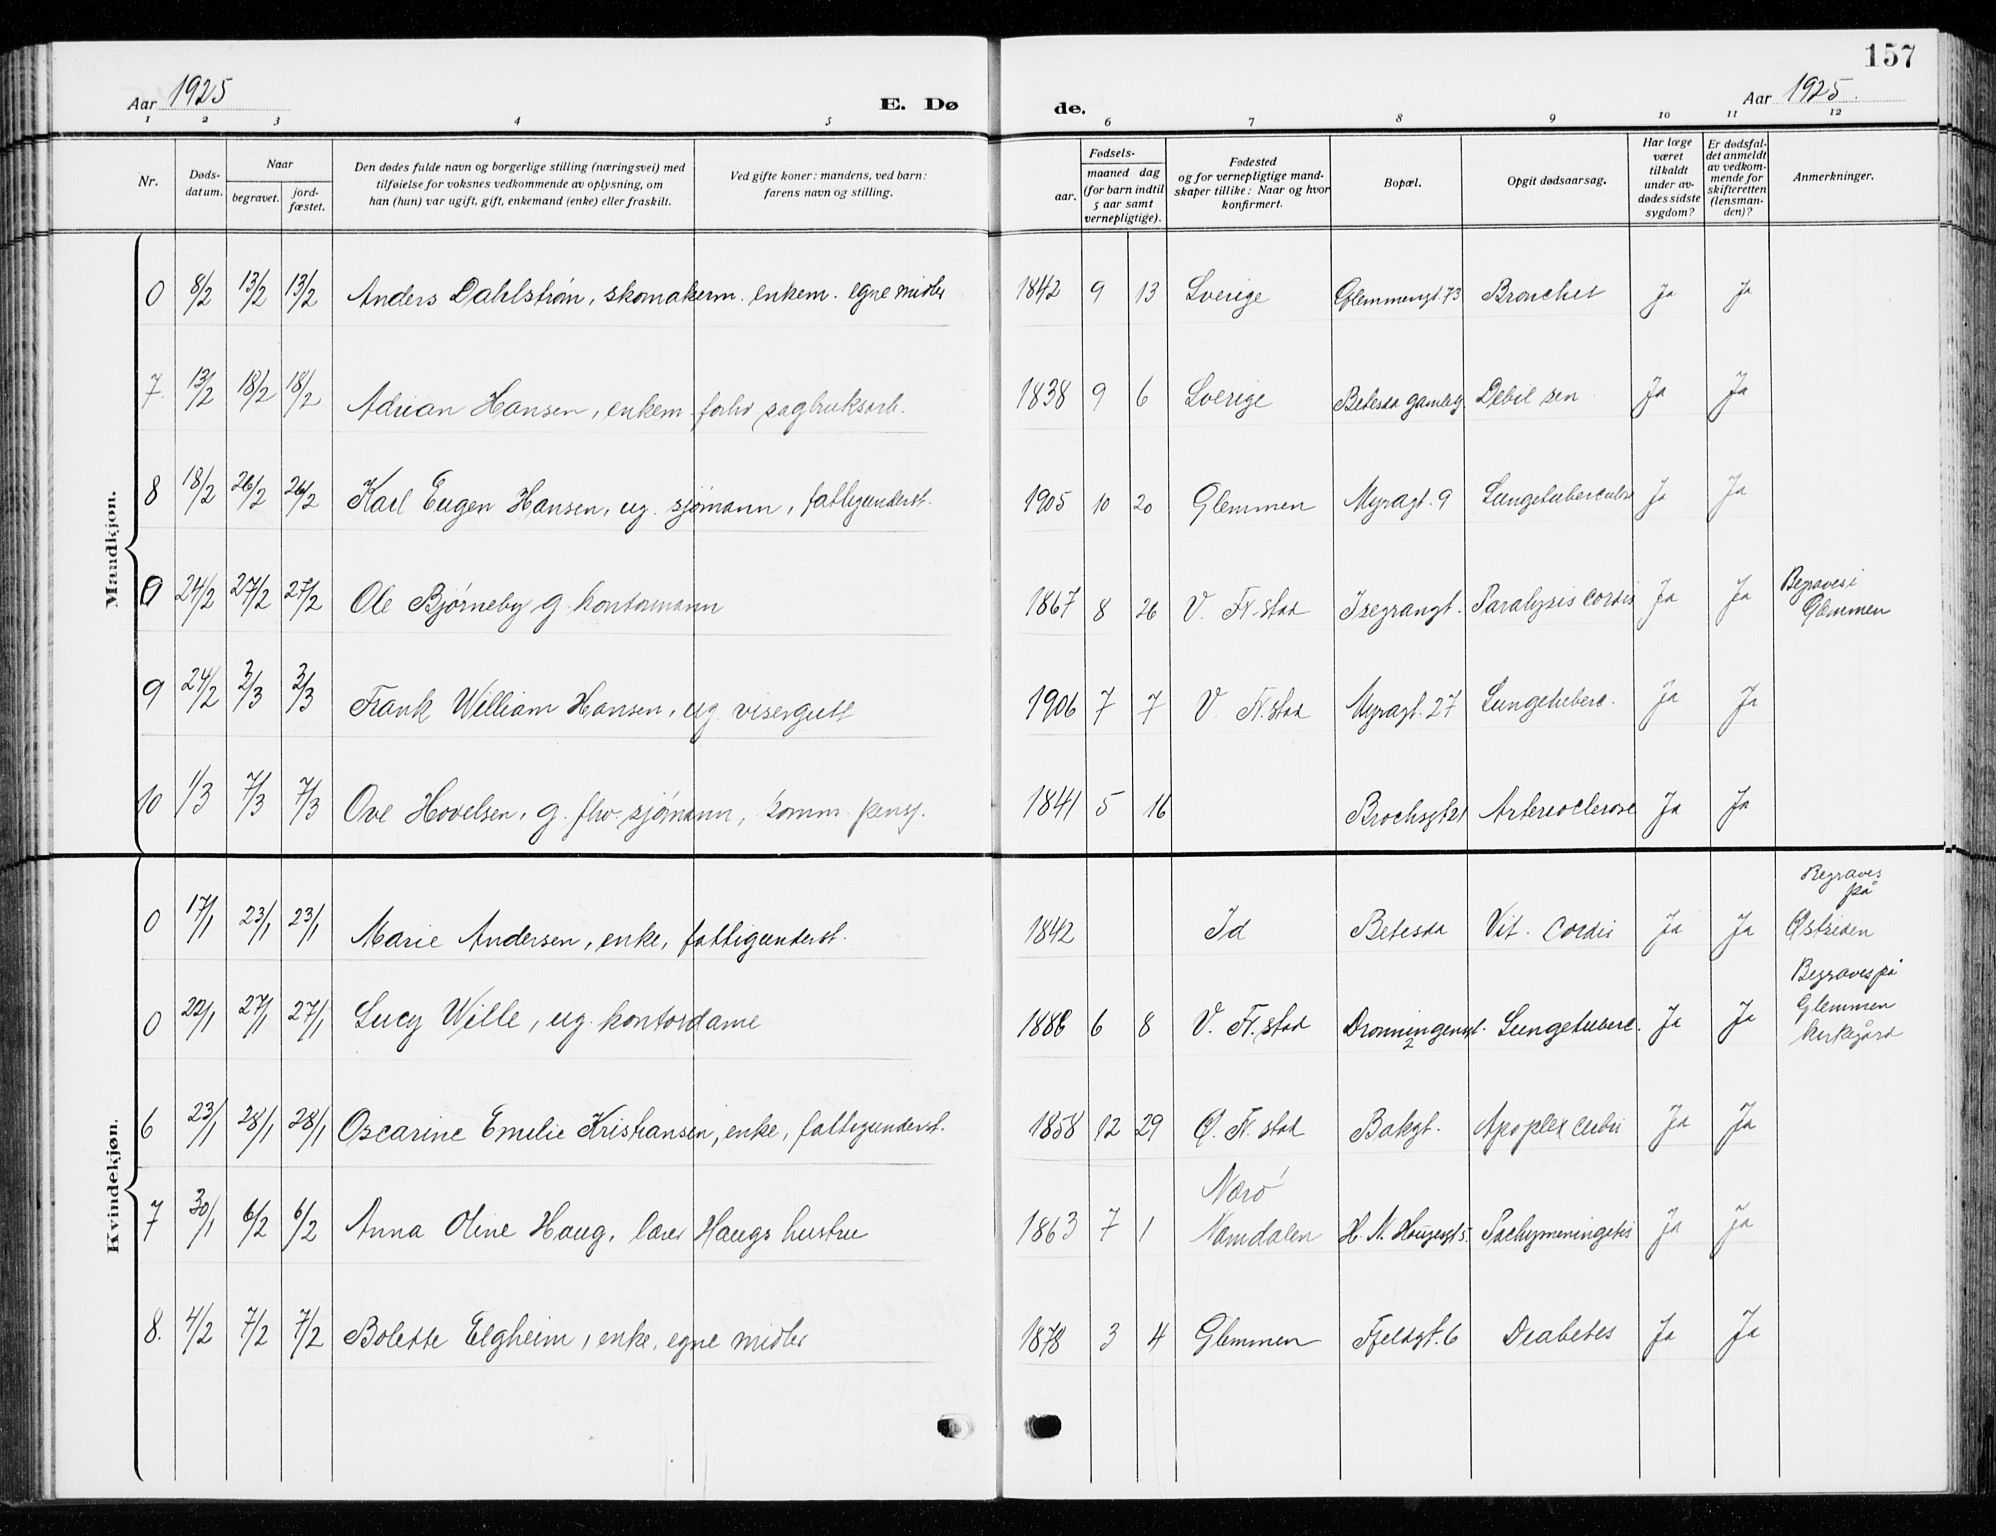 157
Aar 1925 E. Dø de. Aar 1925.
1 2 3 4 5 6 7 8 9 10 11 12
Nr. Døds-datum. Naar begravet. jord-fæstet. Den dødes fulde navn og borgerlige stilling (næringsvei) med tilføielse for voksnes vedkommende av oplysning, om han (hun) var ugift, gift, enkemand (enke) eller fraskilt. Ved gifte koner: mandens, ved barn: farens navn og stilling. Fødsels- aar. maaned dag (for barn indtil 5 aar samt vernepligtige). Fødested og for vernepligtige mand-skaper tillike: Naar og hvor konfirmert. Bopæl. Opgit dødsaarsag. Har læge været tilkaldt under av-dødes sidste sygdom? Er dødsfal-det anmeldt av vedkom-mende for skifteretten (lensman-den)? Anmerkninger.
Mandkjøn.
0 8/2 13/2 13/2 Anders Dahlstrøm, skomakerm. enkem. egne midler 1842 9 13 Sverige Glemmengt. 73 Bronchit Ja Ja
7. 13/2 18/2 18/2 Adrian Hansen, enkem. forhv sagbruksarb. 1838 9 6 Sverige Betesda gamleh. Debil sen. Ja Ja
8 18/2 26/2 26/2 Karl Eugen Hansen, ug. sjømann, fattigunderst. 1905 10 20 Glemmen Myragt. 9 Lungetuberculose Ja Ja
0 24/2 27/2 27/2 Ole Bjørneby g. kontormann 1867 8 26 V. Fr.stad Isegrangt. Paralysis cordis Ja Ja Begraves i Glemmen
9 24/2 3/3 3/3 Frank William Hansen, ug. visergutt 1906 7 7 V. Fr.stad Myragt. 27 Lungetuberc. Ja Ja
10 1/3 7/3 7/3 Ove Hovelsen, g. fhv. sjømann, komm. pensj. 1841 5 16 Brochsgt 21 Arterioclerose Ja Ja
Kvindekjøn.
0 17/1 23/1 23/1 Marie Andersen, enke, fattigunderst. 1842 Id Betesda Vit. cordis Ja Ja Begraves på Østsiden
0 22/1 27/1 27/1 Lucy Wille, ug. kontordame 1886 6 8 V. Fr.stad Dronningensgt. 2 Lungetuberc. Ja Ja Begraves på Glemmen kirkegård
6 23/1 28/1 28/1 Oscarine Emilie Kristiansen, enke, fattigunderst. 1858 12 29 Ø. Fr.stad Bakgt. Apoplex cerbri Ja Ja
7 30/1 6/2 6/2 Anna Oline Haug, lærer Haugs hustru 1863 7 1 Nærö Namdalen H. N. Haugesgt 5. Pachymeningitis Ja Ja
8. 4/2 7/2 7/2 Bolette Elgheim, enke, egne midler 1878 3 4 Glemmen Fjeldgt. 6 Diabetes Ja Ja